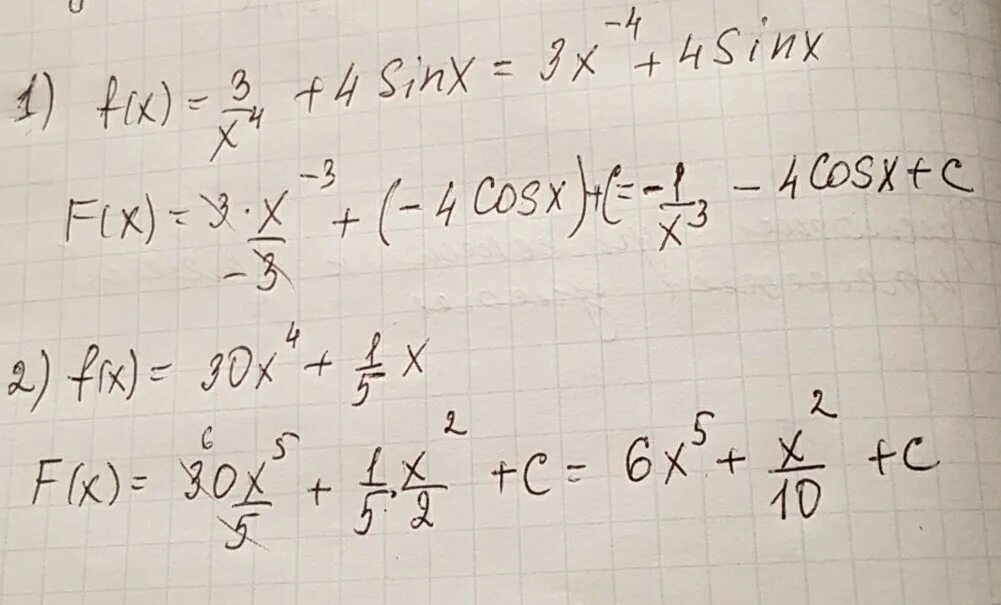 1) f(x) = 3/x⁴ + 4 Sinx = 3x⁻⁴ + 4 Sinx
F(x) = 3 · x⁻³/-3 + (- 4 Cosx) + C = - 1/x³ - 4 Cosx + C
2) f(x) = 30x⁴ + 1/5 x
6
F(x) = 30x⁵/5 + 1/5 · x²/2 + C = 6x⁵ + x²/10 + C